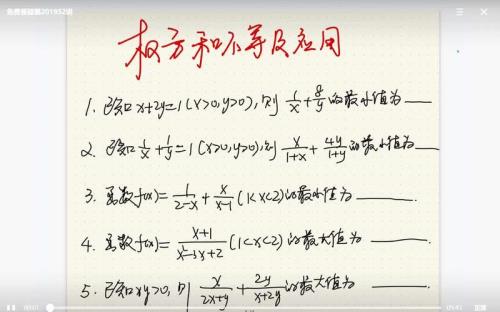 权方和不等及应用
1. 已知x+2y=1(x>0,y>0),则 1/x+8/y 的最小值为____
2. 已知 1/x+1/y=1(x>0,y>0),则 x/(1+x)+4y/(1+y) 的最小值为____
3. 函数f(x)=1/(2-x)+x/(x-1) (1<x<2)的最小值为____.
4. 函数f(x)=(x+1)/(x²-3x+2) (1<x<2)的最大值为____.
5. 已知xy>0,则 x/(2x+y)+2y/(x+2y) 的最大值为____.
00:01